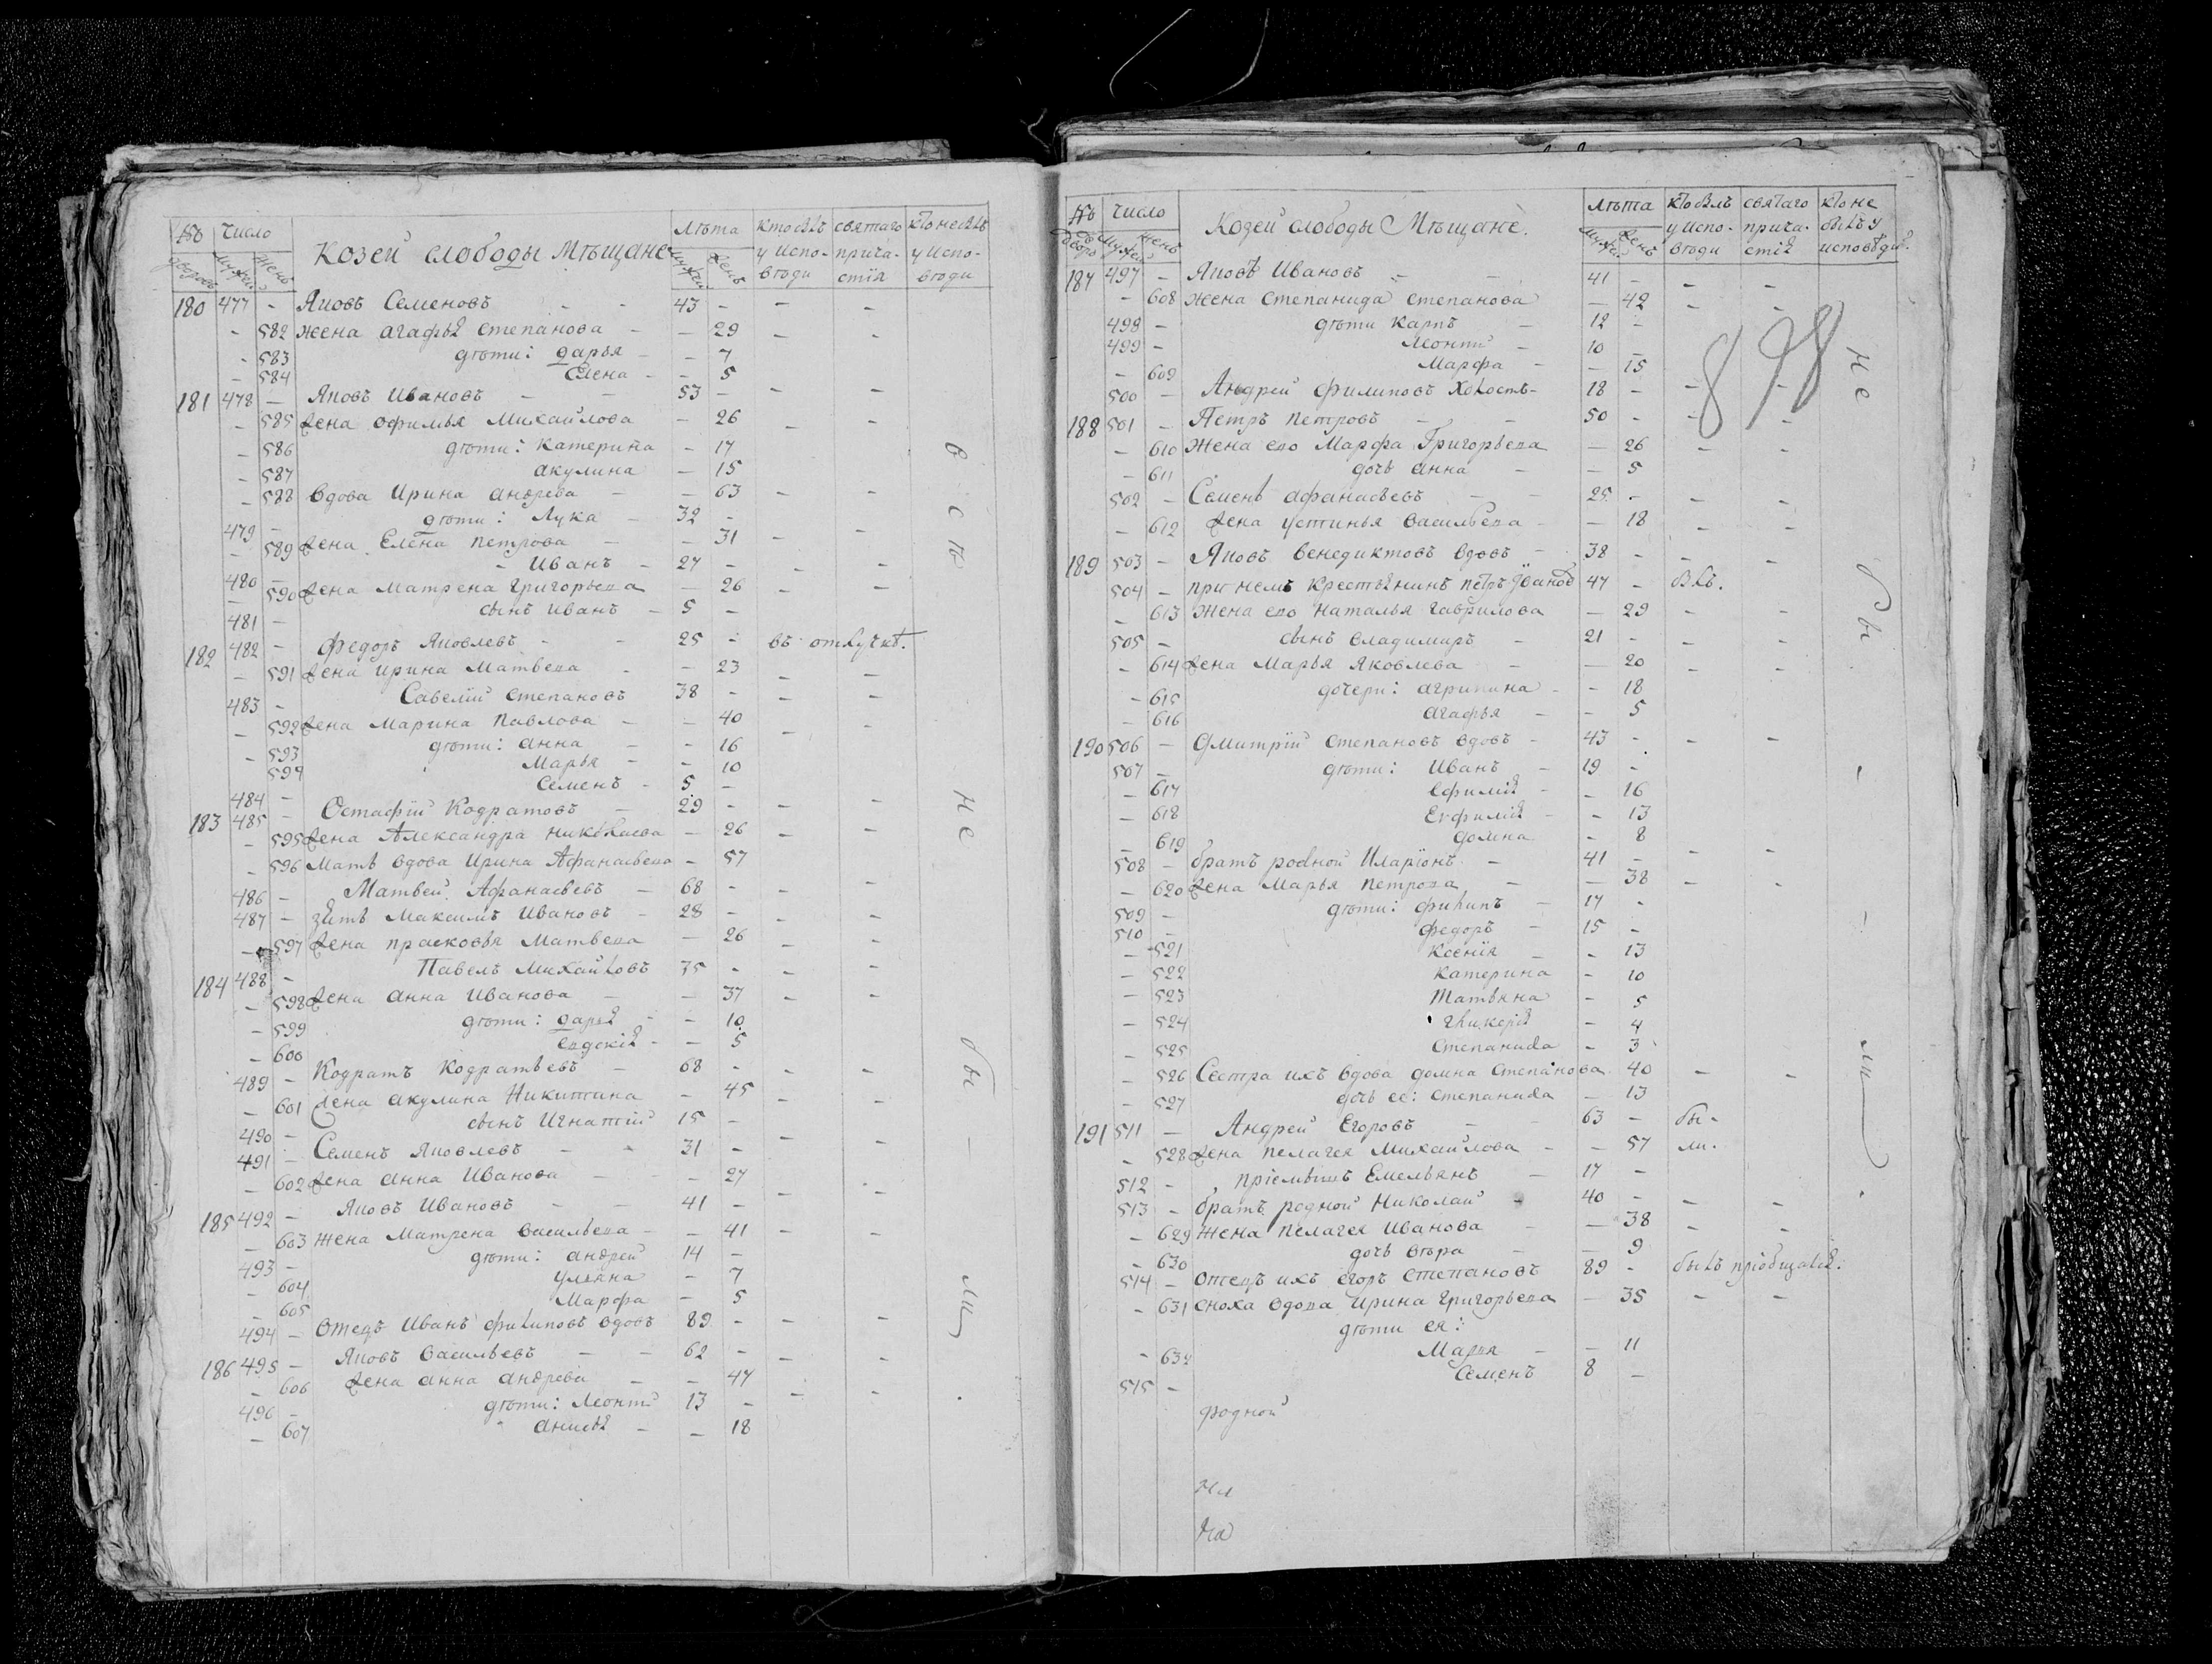 № Число Козей слободы Мѣщане Лѣта кто былъ святаго кто не былъ
дворовъ Мужей Женъ Мужей Женъ у испо- прича- у испо-
вѣди стїя вѣди
180 477 - Яковъ Семеновъ - - 43 - - -
- 582 жена агафья степанова - - 29 - -
- 583 дѣти: дарья - - 7
- 584 Елена - - 5
181 478 - Яковъ Ивановъ - - 53 - - -
- 585 жена офимья Михайлова - 26 - -
- 586 дѣти: Катерина - 17
- 587 акулина - 15
- 588 вдова Ирина андрева - - 63 - -
479 - дѣти: Лука - 32 -
- 589 жена Елена петрова - - 31 - -
480 - - Иванъ - 27 - - -
- 590 жена Матрена григорьева - 26 - -
481 - сынъ Иванъ - 5 -
182 482 - федоръ Яковлевъ - - 25 - въ отлучкѣ.
- 591 жена ирина Матвева - - 23 - -
483 - Савелїй степановъ 38 - - -
- 592 жена Марина павлова - - 40 - -
- 593 дѣти: анна - - 16
594 Марья - - 10
484 - Семенъ - 5 -
183 485 - Остафїй Кодратовъ - 29 - - -
- 595 жена Александра николаева - 26 - -
- 596 Мать вдова Ирина Афанасьева - 57
486 - Матвей Афанасьевъ - 68 - - -
487 - зять Максимъ Ивановъ - 28 - - -
- 597 жена прасковья Матвева - 26 - -
184 488 - Павелъ Михайловъ 35 - - -
- 598 жена анна Иванова - - 37 - -
- 599 дѣти: дарья - - 10
- 600 евдокїя - - 5
489 - Кодратъ Кодратьевъ - 68 - - -
- 601 жена акулина Никитина - 45 - -
490 - сынъ Игнатїй 15 -
491 - Семенъ Яковлевъ - - 31 - - -
- 602 жена анна Иванова - - 27 - -
185 492 - Яковъ Ивановъ - - 41 -
- 603 жена Матрена васильева - - 41 - -
493 - дѣти: андрей 14 -
- 604 ульяна - 7
- 605 Марфа - 5
494 - Отецъ Иванъ филиповъ вдовъ 89 - - -
186 495 - Яковъ васильевъ - - 62 - - -
- 606 жена анна андреева - - 47 - -
496 - дѣти: Леонтї 13 -
- 607 анисья - - 18
всѣ не бы - ли.
№ Число Козей слободы Мѣщане. Лѣта кто былъ святаго кто не
дворъ Мужей Женъ Мужей Женъ у испо- прича- былъ у
вѣди стїя исповѣди.
187 497 - Яковъ Ивановъ - - 41 - - -
- 608 жена степанида степанова - 42 - -
498 - дѣти карпъ - 12 -
499 - леонтї - 10 -
- 609 Марфа - - 15
500 - Андрей филиповъ холостъ - 18 - - -
188 501 - Петръ петровъ - - 50 - - -
- 610 Жена его Марфа Григорьева - 26 - -
- 611 дочь анна - - 5
502 - Семенъ афанасьевъ - - 25 - - -
- 612 жена устинья васильева - - 18 - -
189 503 - Яковъ венедиктовъ вдовъ - 38 - - -
504 - при немъ крестьянинъ петръ Иванов 47 - былъ.
- 613 жена его Наталья гаврилова - 29 - -
505 - сынъ владимиръ - 21 - - -
- 614 жена Марья яковлева - - 20 - -
- 615 дочери: агрипина - - 18
- 616 агафья - - 5
190 506 - Дмитрїй степановъ вдовъ - 43 - - -
507 - дѣти: Иванъ - 19 -
- 617 ефимїя - - 16
- 618 Евфимїя - - 13
- 619 домна - 8
508 - братъ родной Иларїонъ - 41 - - -
- 620 жена Марья петрова - - 38 - -
509 - дѣти: филипъ - 17 -
510 - федоръ - 15 -
- 521 Ксенїя - - 13
- 522 катерина - 10
- 523 татьяна - 5
- 524 гликерїя - 4
- 525 степанида - 3
- 526 Сестра ихъ вдова домна степанова 40 - -
- 527 дочь ее: степанида - 13
191 511 - Андрей Егоровъ - - 63 - бы-
- 528 жена пелагея михайлова - - 57 ли.
512 - прїемышъ Емельянъ - 17 -
513 - братъ родной Николай - 40 - - -
- 629 жена пелагея иванова - - 38 - -
- 630 дочь вѣра - - 9
514 - Отецъ ихъ егоръ степановъ 89 - былъ прїобщался.
- 631 сноха вдова ирина григорьева - 35 - -
дѣти ея:
- 632 Марья - - 11
515 - Семенъ 8 -
родной
898
не бы - - ли.